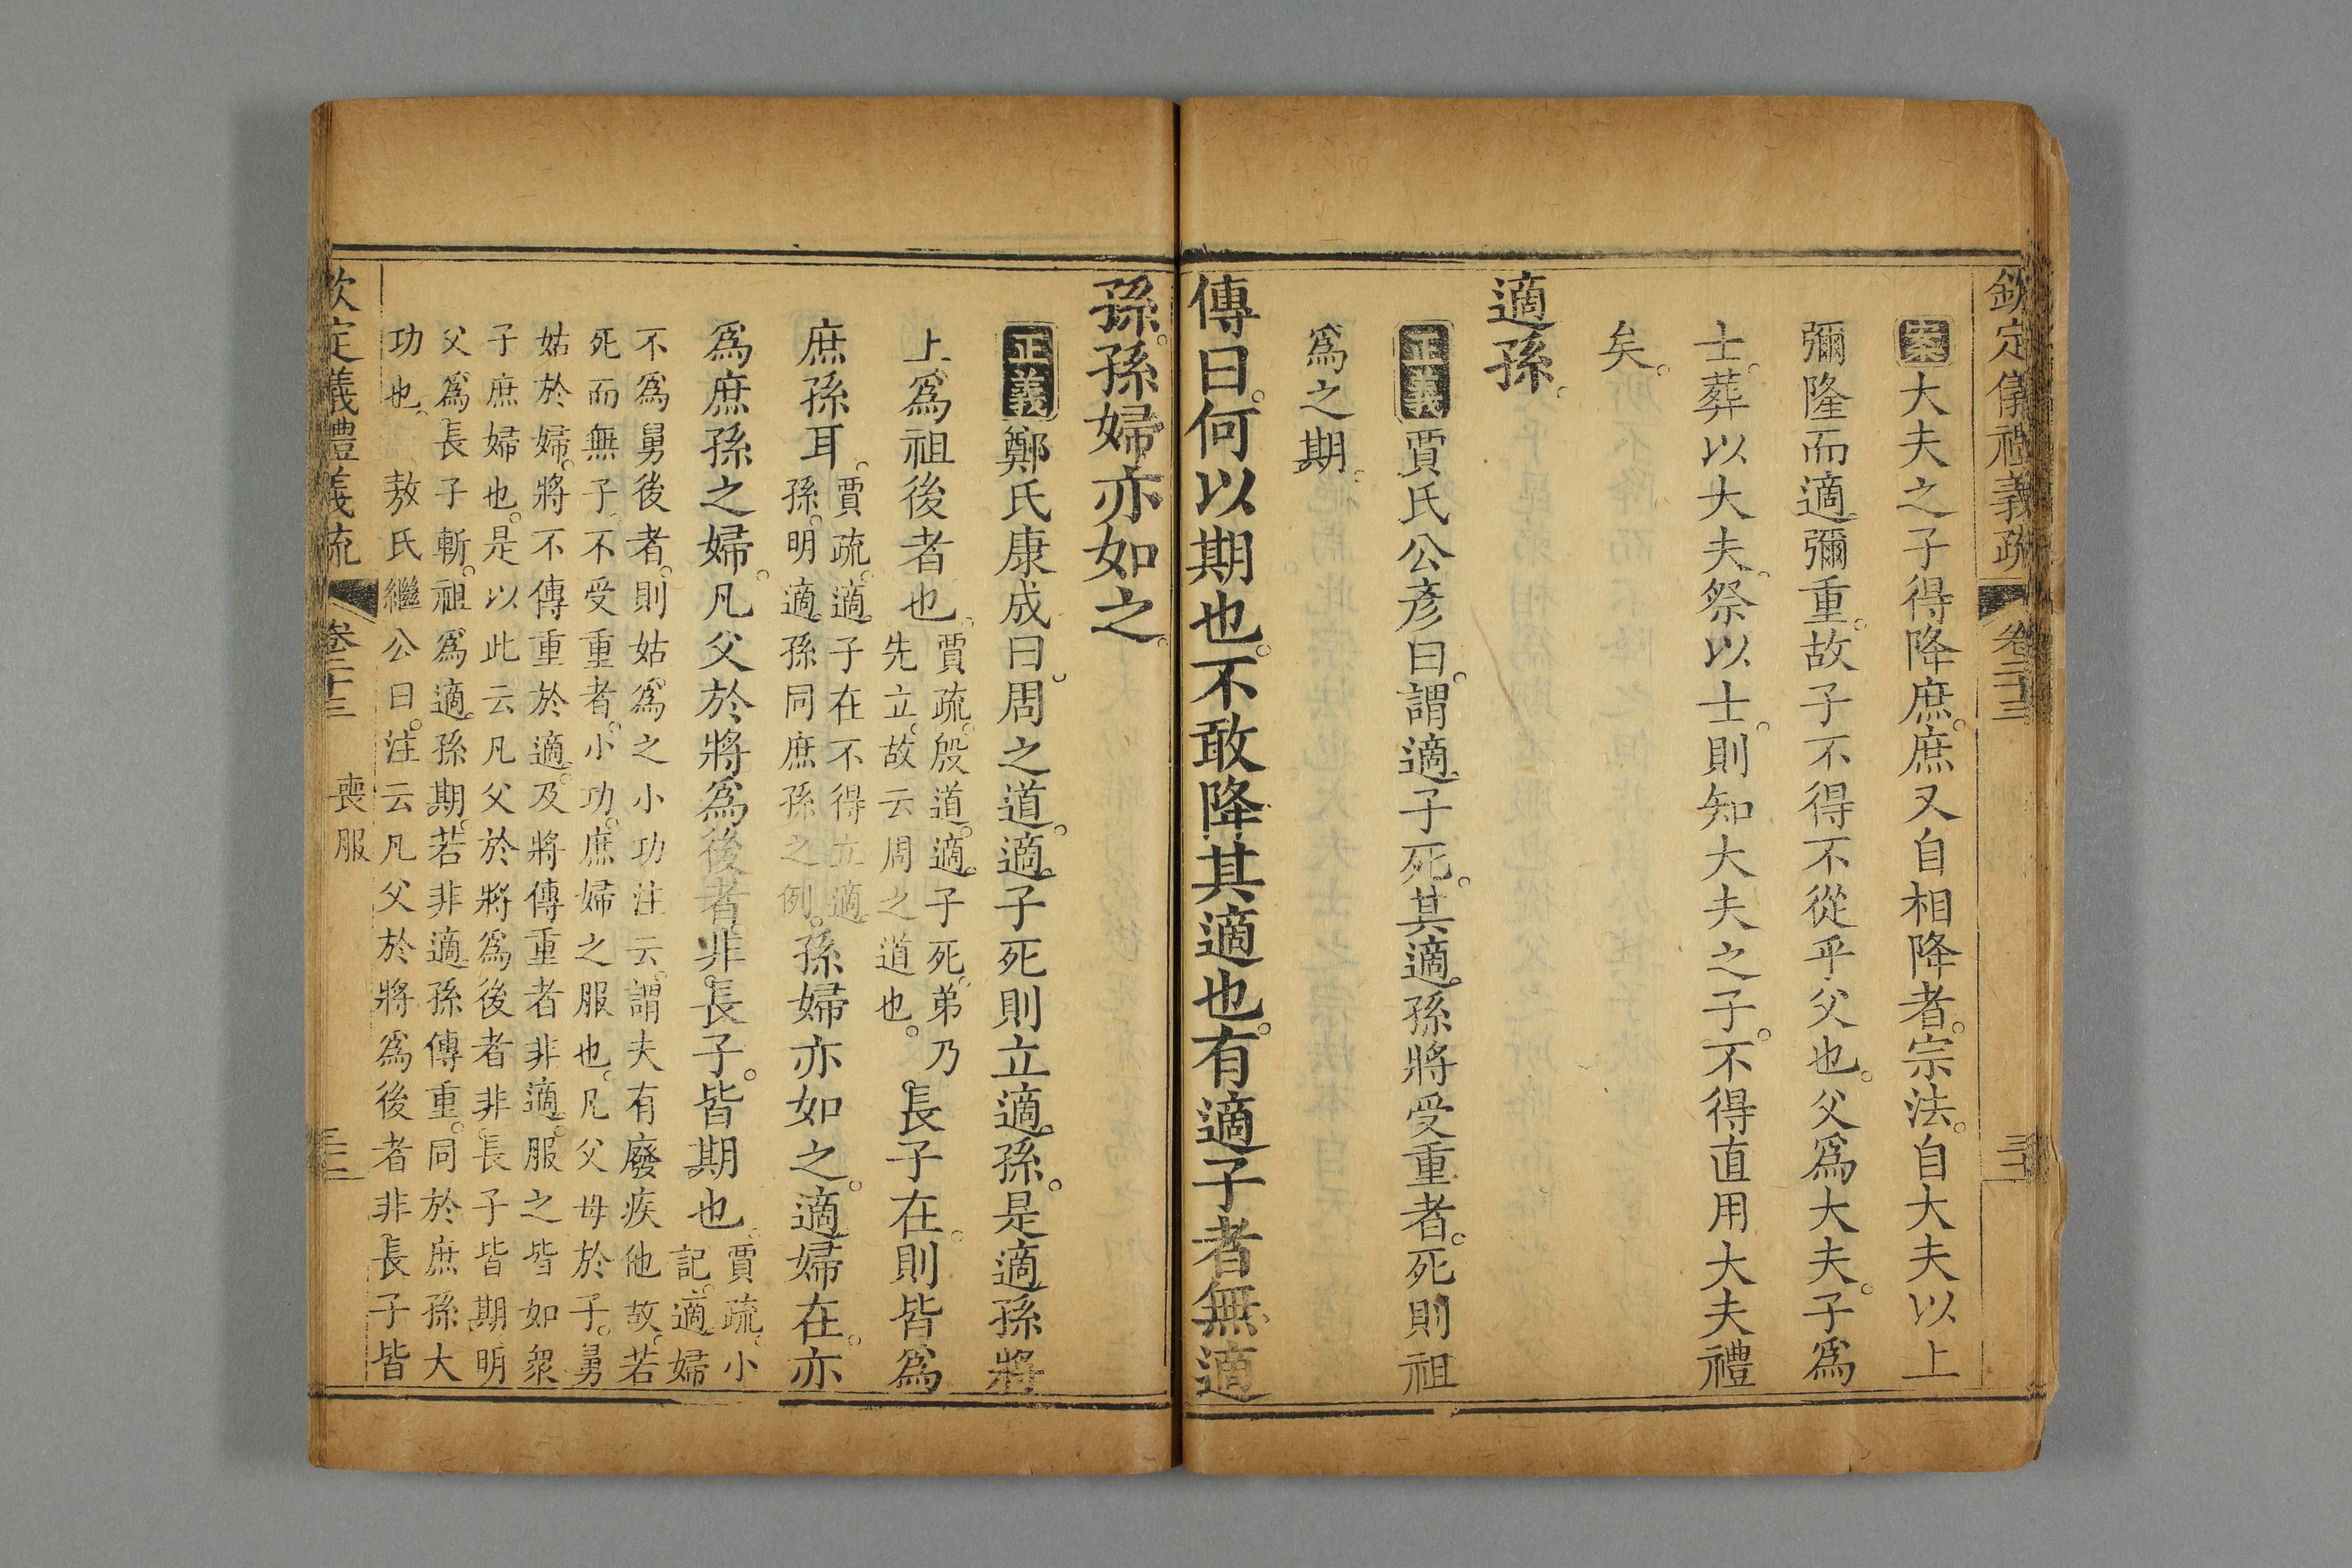 欽定儀禮義疏 卷二十三
案大夫之子得降庶。庶又自相降者。宗法。自大夫以上
彌隆而適彌重。故子不得不從乎父也。父為大夫。子為
士。葬以大夫。祭以士。則知大夫之子。不得直用大夫禮
矣。
適孫。
正義賈氏公彥曰。謂適子死。其適孫將受重者。死則祖
為之期。
傳曰。何以期也。不敢降其適也。有適子者無適
孫。孫婦亦如之。
正義鄭氏康成曰。周之道。適子死則立適孫。是適孫將
上為祖後者也。賈疏。殷道。適子死。弟乃
先立。故云周之道也。長子在。則皆為
庶孫耳。賈疏。適子在不得立適
孫。明適孫同庶孫之例。孫婦亦如之。適婦在。亦
為庶孫之婦。凡父於將為後者。非長子。皆期也。賈疏。小
記。適婦
不為舅後者。則姑為之小功注云。謂夫有廢疾他故。若
死而無子。不受重者。小功。庶婦之服也。凡父母於子。舅
姑於婦。將不傳重於適。及將傳重者非適。服之皆如眾
子庶婦也。是以此云凡父於將為後者非長子皆期。明
父為長子斬。祖為適孫期。若非適孫傳重。同於庶孫大
功也。 敖氏繼公曰。注云凡父於將為後者非長子皆
欽定義禮義疏 卷二十三 喪服